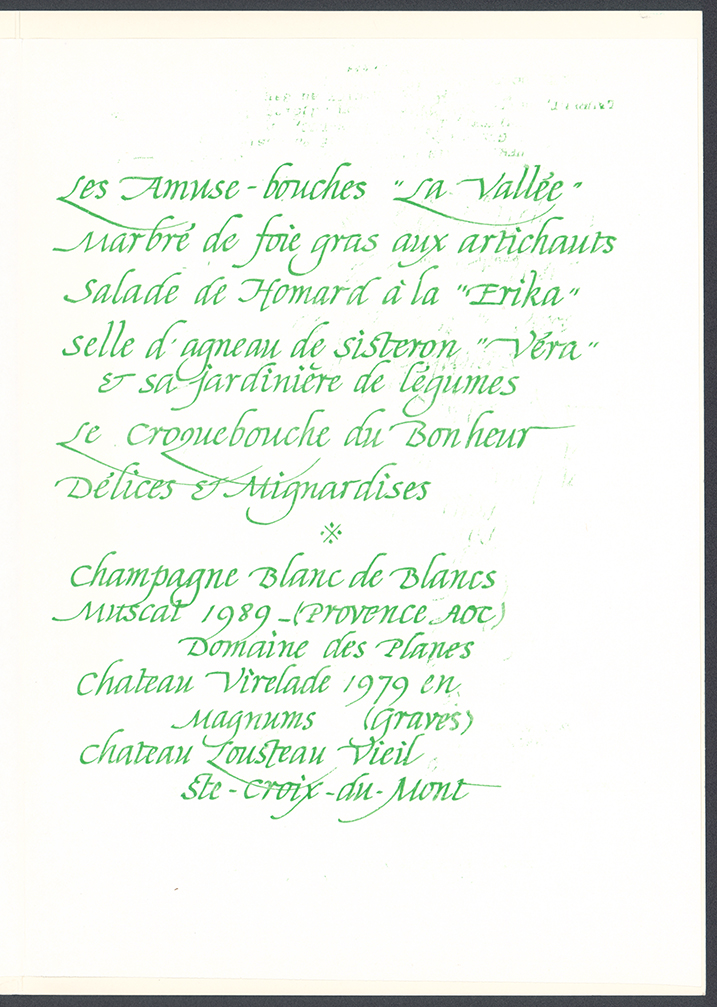 Les Amuse-bouches "La Vallée"
Marbré de foie gras aux artichauts
Salade de Homard à la "Erika"
Selle d'agneau de Sisteron "Véra"
& sa jardinière de légumes
Le Croquebouche du Bonheur
Délices & Mignardises
※
Champagne Blanc de Blancs
Muscat 1989 - (Provence AOC)
Domaine des Planes
Chateau Virelade 1979 en
Magnums (Graves)
Chateau Lousteau Vieil
Ste-Croix-du-Mont